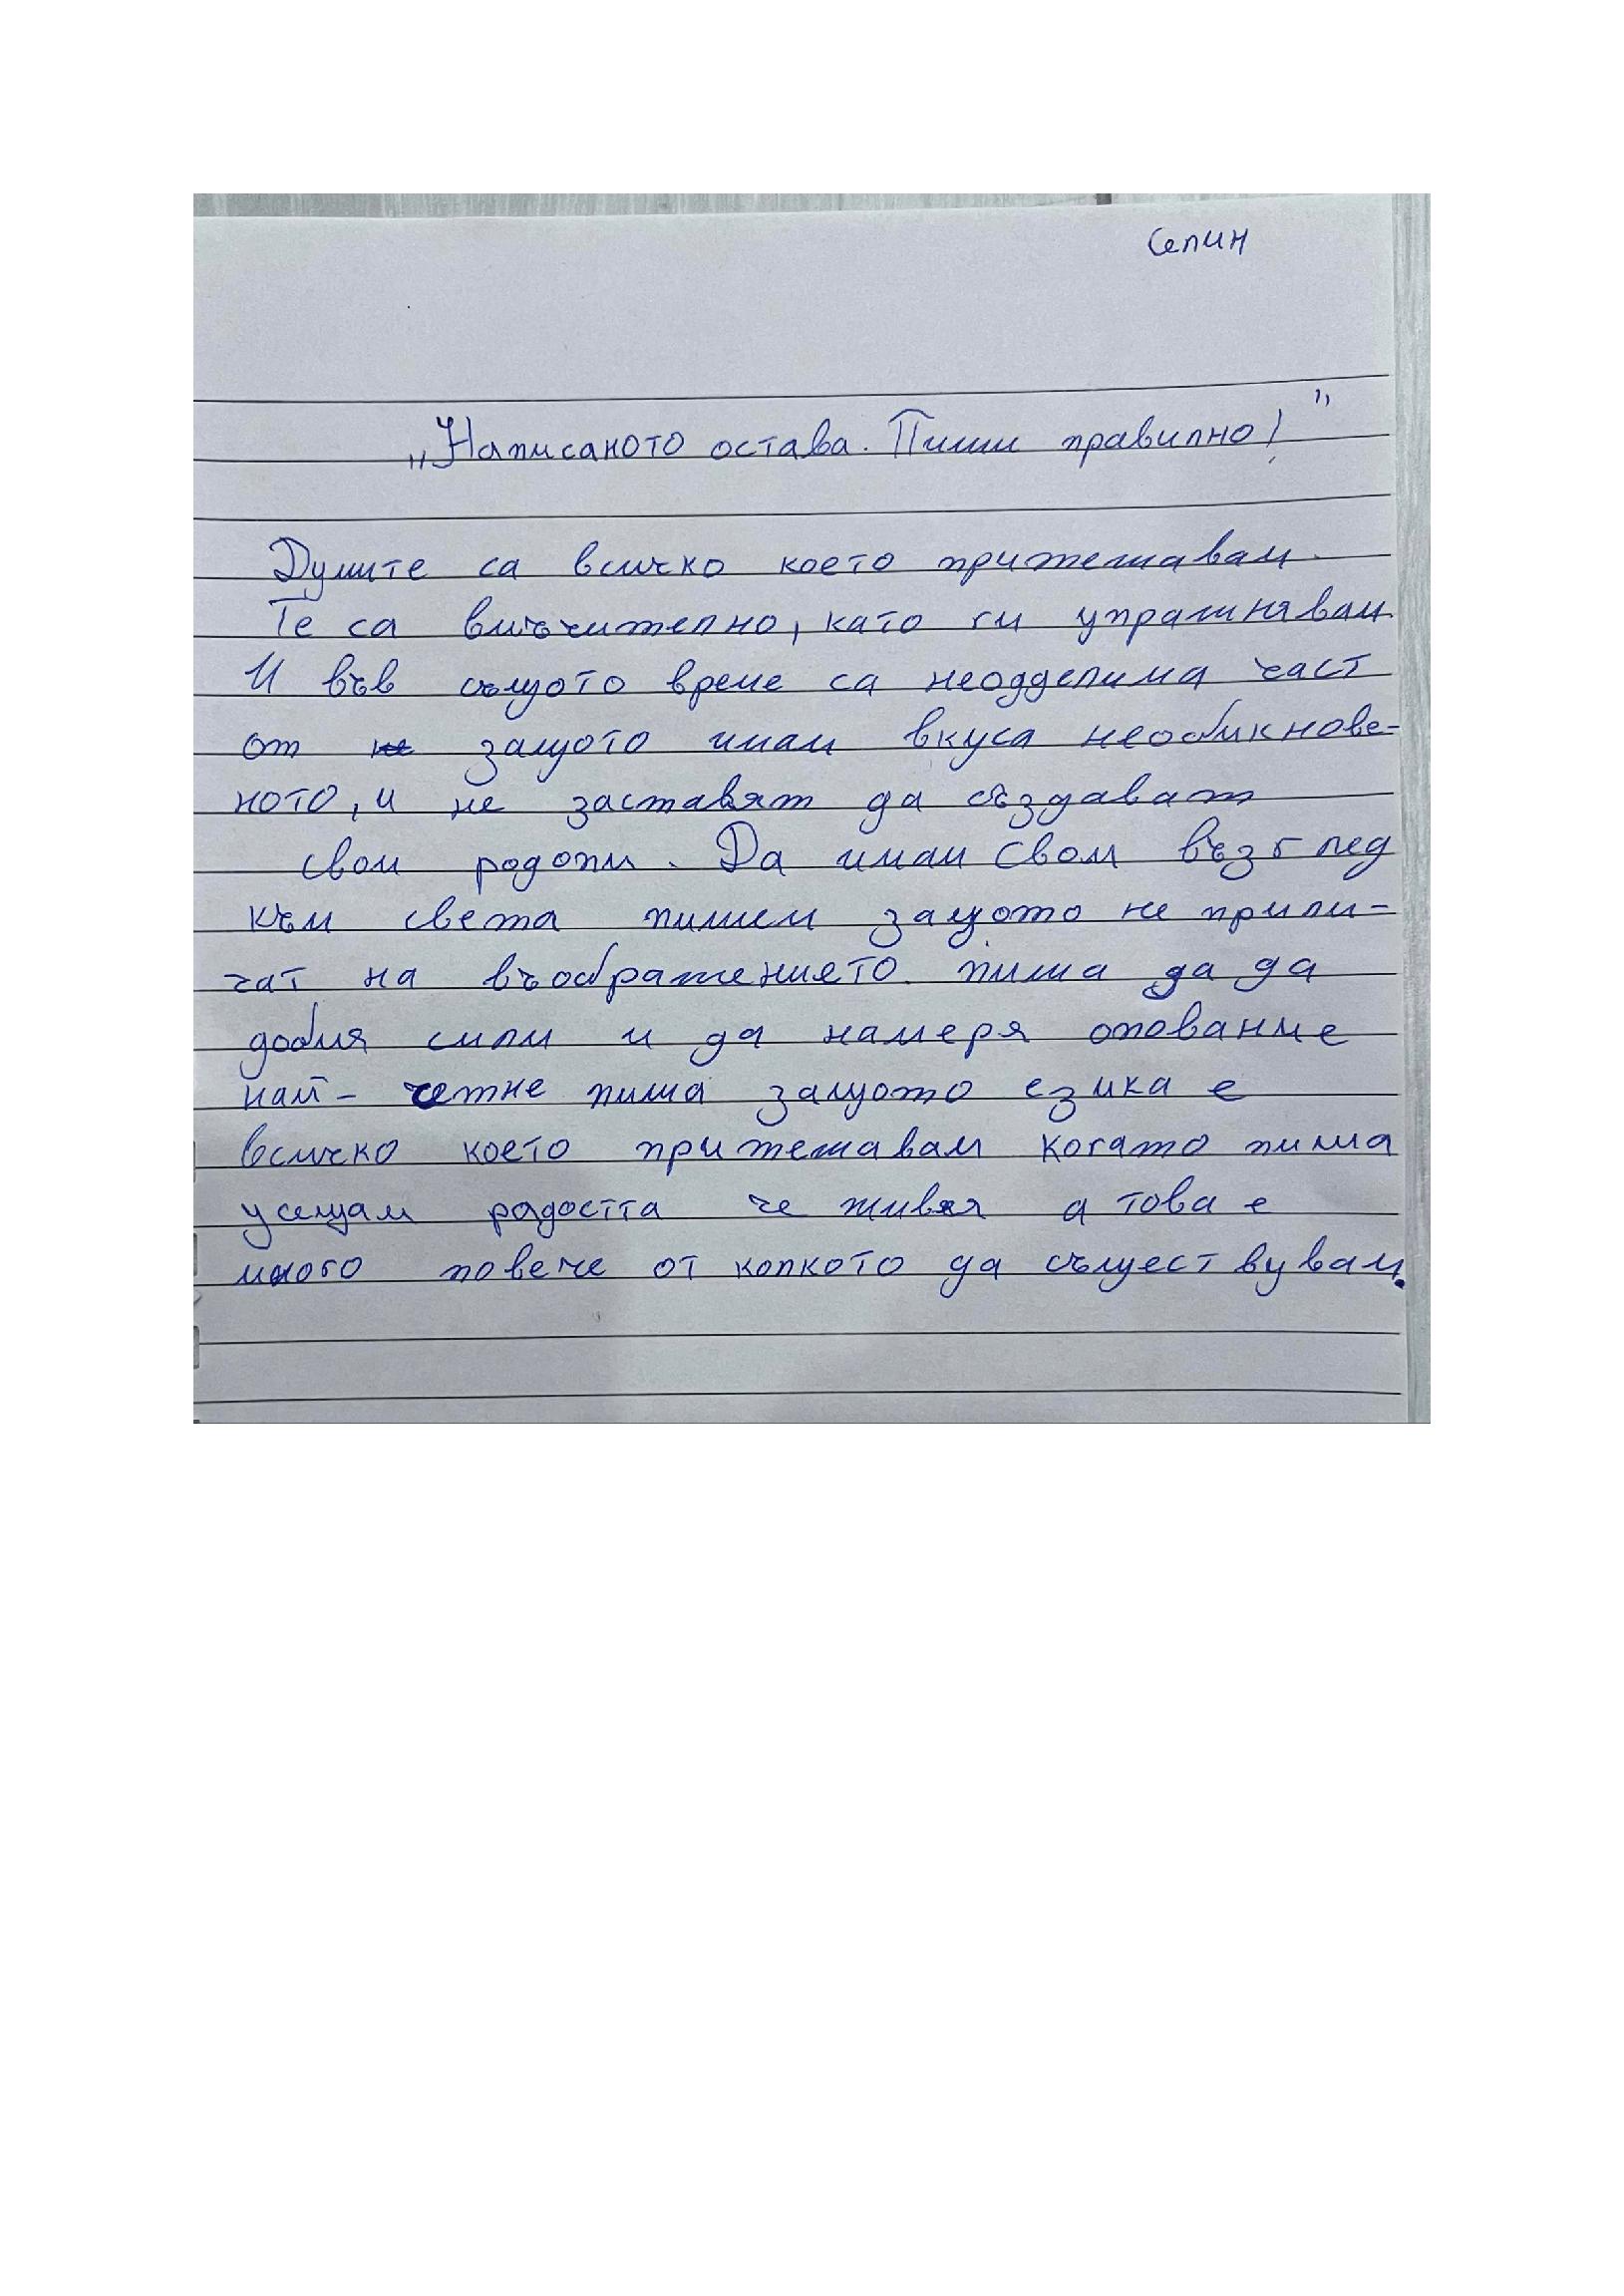 Селин
„Написаното остава. Пиши правилно!"
Думите са всичко което притежавам.
Те са вмъчително, като ги упражнявам
И във същото време са неодделима част
от защото имам вкуса необикнове-
ното, и не заставят да създават
свои родопи. Да имам свом възглед
към света пишем защото не прили-
чат на въображението. пиша да да
добия сили и да намеря опование
най- четне пиша защото езика е
всичко което притежавам когато пиша
усещам радостта че живея а това е
много повече от колкото да съществувам.